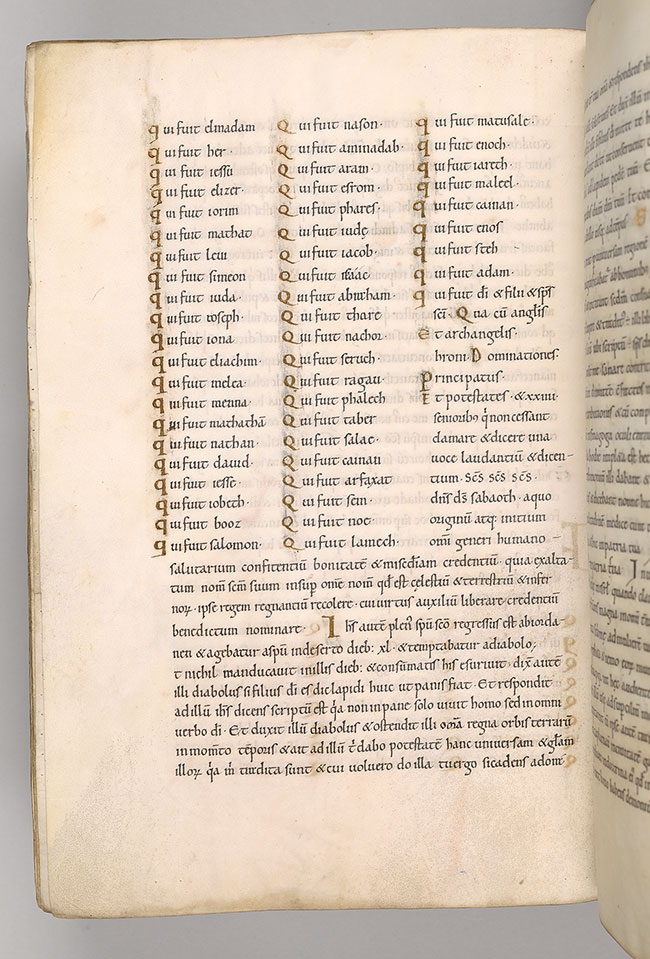 qui fuit elmadam
qui fuit her·
qui fuit iessu
qui fuit elizer·
qui fuit iorim
qui fuit mathat
qui fuit leui
qui fuit simeon
qui fuit iuda·
qui fuit ioseph·
qui fuit iona
qui fuit eliachim·
qui fuit melea·
qui fuit menna·
qui fuit mathatha
qui fuit nathan·
qui fuit dauid·
qui fuit iesse·
qui fuit iobeth·
qui fuit booz
qui fuit salomon·
Qui fuit nason·
Qui fuit aminadab·
Qui fuit aram·
Qui fuit esrom·
Qui fuit phares·
Qui fuit iudę
Qui fuit iacob·
Qui fuit isaac
Qui fuit abraham
Qui fuit thare
Qui fuit nachor·
Qui fuit seruch·
Qui fuit ragau·
Qui fuit phalech
Qui fuit taber
Qui fuit salae·
Qui fuit cainan
Qui fuit arfaxat
Qui fuit sem·
Qui fuit noe·
Qui fuit lamech·
qui fuit matusale·
qui fuit enoch·
qui fuit iareth·
qui fuit maleel·
qui fuit cainan·
qui fuit enos
qui fuit steh
qui fuit adam·
qui fuit di & filii & sp̄s
sc̄i· Qua cū anglis
Et archangelis·
throni· Dominationes·
Principatus·
Et potestates· & xxiiii·
senioribꝰ q̄ non cessant
clamare & dicere una
uoce laudantiū & dicen-
tium· Sc̄s Sc̄s Sc̄s·
dn̄s d̄s sabaoth· a quo
originū atq; initium
om̄i generi humano-
salutarium confitentiū bonitatē & misc̄diam credentiū· quia exalta-
tum nom̄ sc̄m suum insup̱ om̄e nom̄ qd̄ est cęlestiū & terrestriū & infer
noꝝ· ipse regem regnantiū recolere· cui uirtus auxiliū liberare credentiū
benedictum nominare· Ih̄s autē plen͛ sp̄u sc̄o regressus est abiorda-
nen & agebatur aspu in deserto dieb; xl· & temptabatur adiabolo;
& nichil manducauit in illis dieb; & consūmatis his esuriuit· dix̄ autē
illi diabolus si filius di es dic lapidi huic ut panis fiat· Et respondit
ad illū ih̄s dicens scriptū est q̄a non in pane solo uiuit homo sed in omni
uerbo di· Et duxit illū diabolus & ostendit illi om̄a regna orbis terrarū
in mom̄to tēporis & ait ad illū t̄ dabo potestatē hanc uniuersam & gl̄am
illoꝝ q̄a m̄ tradita sunt & cui uoluero do illa tu ergo si cadens adone-